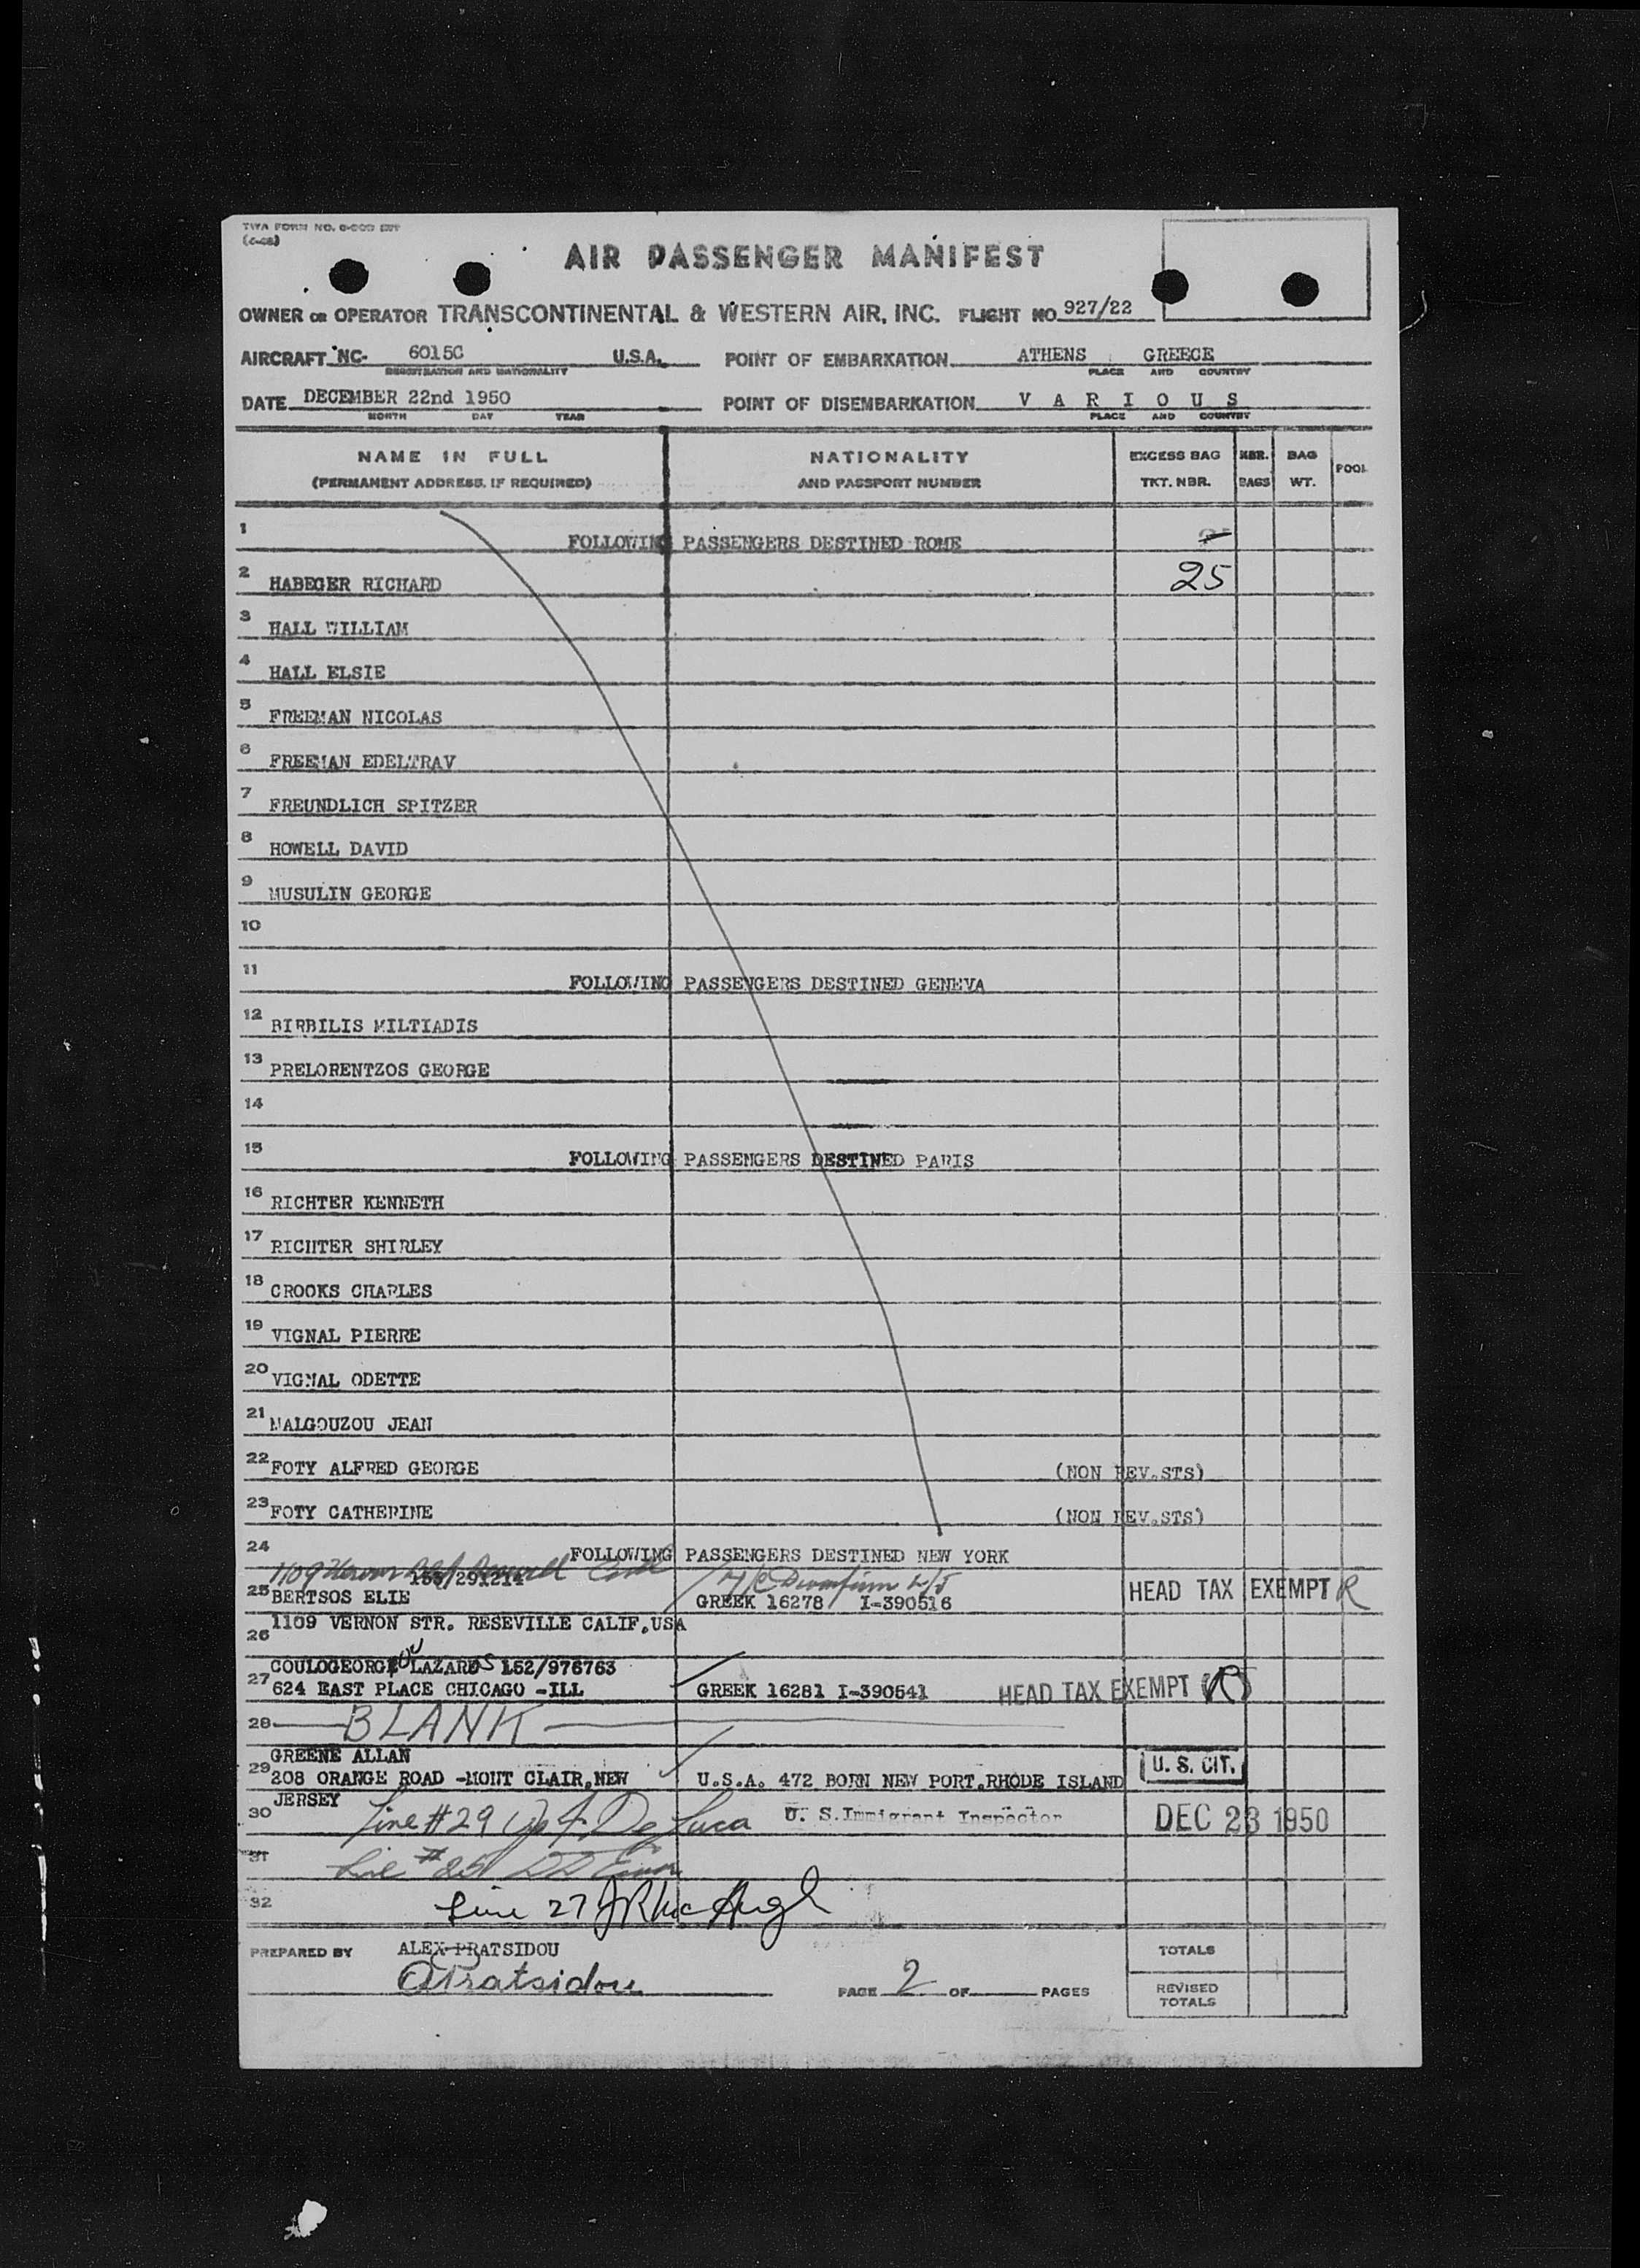 (6-48)
AIR PASSENGER MANIFEST
OWNER OR OPERATOR TRANSCONTINENTAL & WESTERN AIR, INC. FLIGHT NO. 927/22
AIRCRAFT NC- 6015C U.S.A. POINT OF EMBARKATION ATHENS GREECE
REGISTRATION AND NATIONALITY PLACE AND COUNTRY
DATE DECEMBER 22nd 1950 POINT OF DISEMBARKATION V A R I O U S
MONTH DAY YEAR PLACE AND COUNTRY
NAME IN FULL NATIONALITY EXCESS BAG NBR. BAG POOL
(PERMANENT ADDRESS, IF REQUIRED) AND PASSPORT NUMBER TKT. NBR. BAGS WT.
1 FOLLOWING PASSENGERS DESTINED ROME
2 HABEGER RICHARD 25
3 HALL WILLIAM
4 HALL ELSIE
5 FREEMAN NICOLAS
6 FREEMAN EDELTRAV
7 FREUNDLICH SPITZER
8 HOWELL DAVID
9 MUSULIN GEORGE
10
11 FOLLOWING PASSENGERS DESTINED GENEVA
12 BIRBILIS MILTIADIS
13 PRELORENTZOS GEORGE
14
15 FOLLOWING PASSENGERS DESTINED PARIS
16 RICHTER KENNETH
17 RICHTER SHIRLEY
18 CROOKS CHARLES
19 VIGNAL PIERRE
20 VIGNAL ODETTE
21 MALGOUZOU JEAN
22 FOTY ALFRED GEORGE (NON REV.STS)
23 FOTY CATHERINE (NON REV.STS)
24 FOLLOWING PASSENGERS DESTINED NEW YORK
1109 153/291214
25 BERTSOS ELIE GREEK 16278 I-390516 HEAD TAX EXEMPT R
1109 VERNON STR. RESEVILLE CALIF.USA
26
COULOGEORGE LAZAROS 152/976763
27 624 EAST PLACE CHICAGO -ILL GREEK 16281 I-390541 HEAD TAX EXEMPT R
28 BLANK
GREENE ALLAN
29 208 ORANGE ROAD -MONT CLAIR,NEW U.S.A. 472 BORN NEW PORT,RHODE ISLAND U. S. CIT.
JERSEY
30 Line #29 De Luca U. S. Immigrant Inspector DEC 23 1950
31 Line #25
32 Line 27
PREPARED BY ALEX PRATSIDOU TOTALS
APratsidou PAGE 2 OF PAGES REVISED
TOTALS